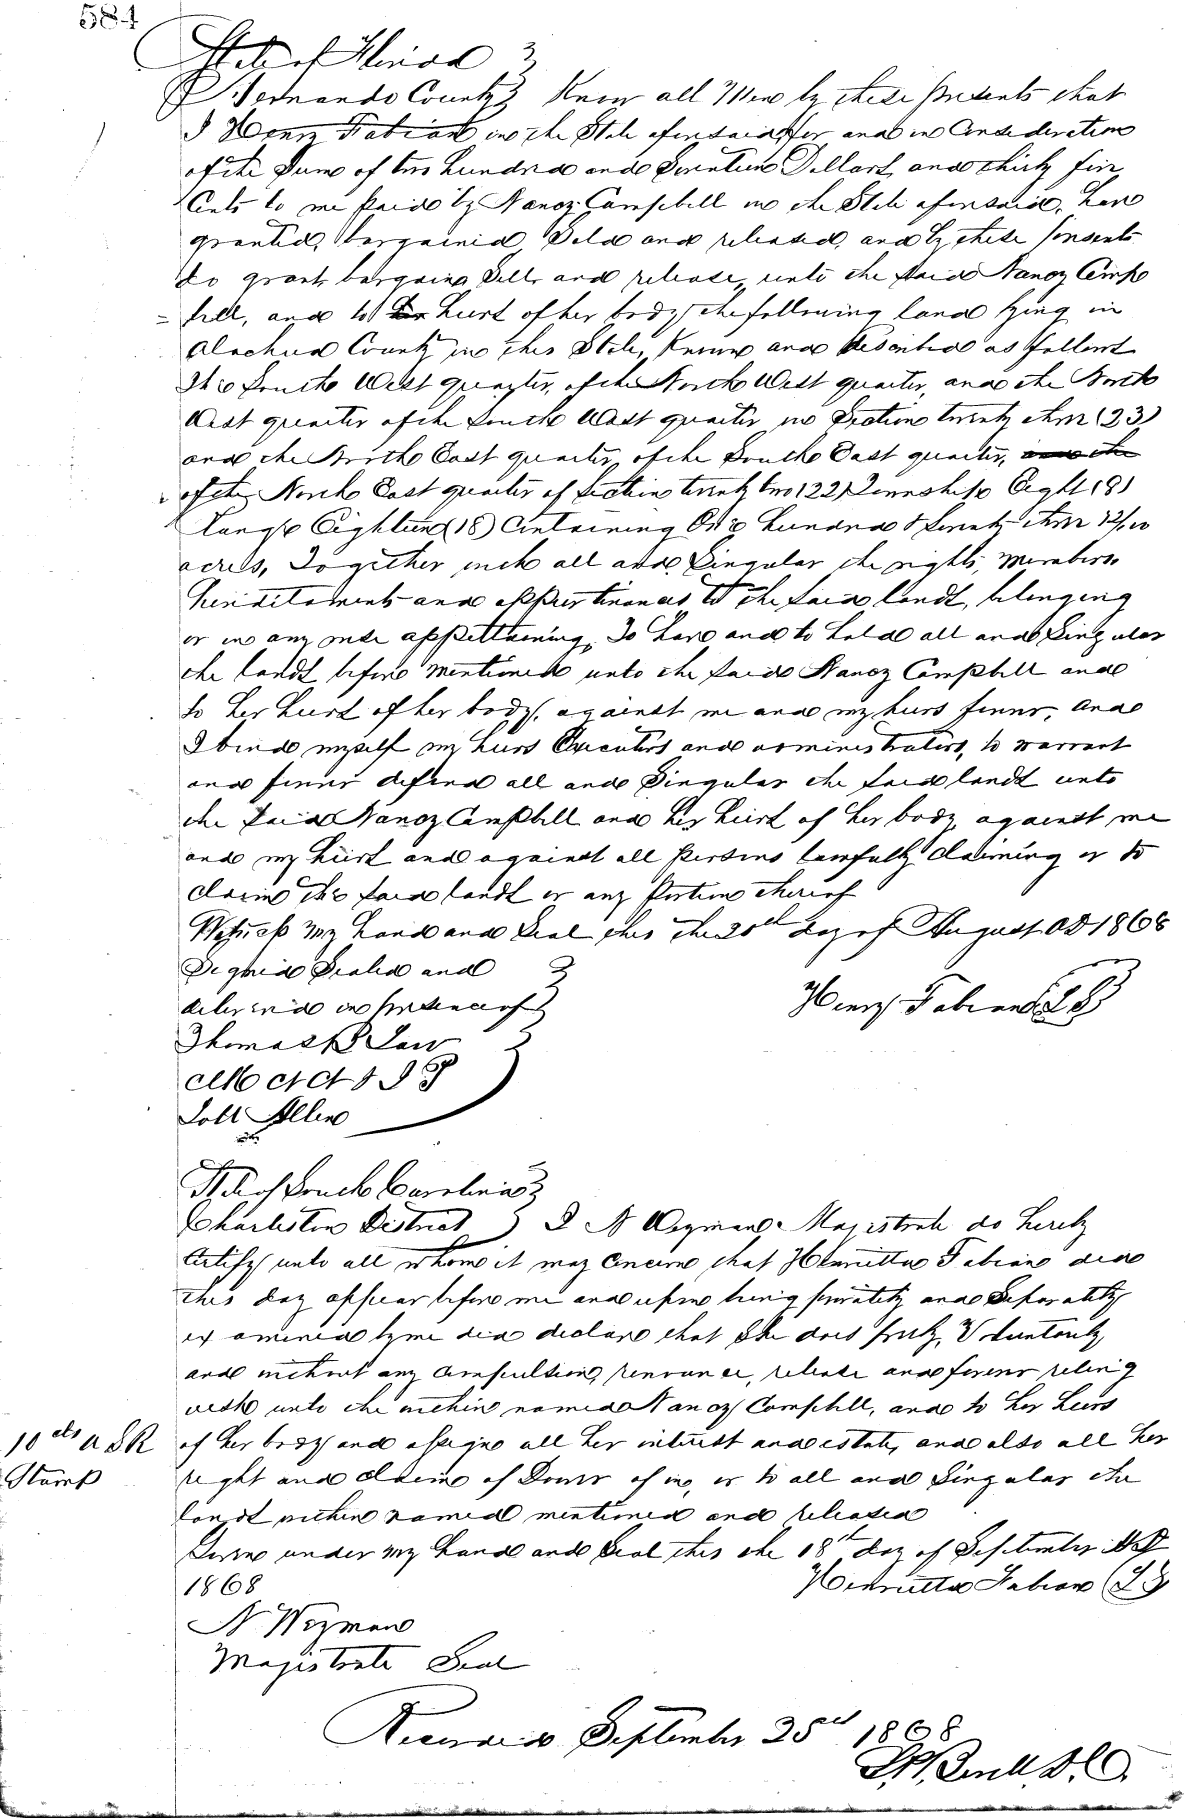 584
State of Florida
Hernando County Know all Men by these presents that
I Henry Fabian in the State aforesaid for and in Consideration
of the Sum of two hundred and Seventeen Dollars and thirty five
Cents to me paid by Nancy Campbell in the State aforesaid, have
granted, bargained, Sold and released, and by these presents
do grant bargain Sell and release, unto the said Nancy Camp
= bell, and to her heirs of her body the following land lying in
Alachua County in this State, Known and described as follows
The South West quarter, of the North West quarter, and the North
West quarter of the South West quarter in Section twenty three (23)
and the North East quarter, of the South East quarter, and the
of the North East quarter of Section twenty two (22) Township Eight (8)
Range Eighteen (18) Containing One hundred & Seventy three
acres, Together with all and Singular the rights, members,
hereditaments and appurtenances to the said lands, belonging
or in any wise appertaining, To have and to hold all and Singular
the lands before mentioned unto the said Nancy Campbell and
to her heirs of her body, against me and my heirs forever, And
I bind myself my heirs Executors and administrators, to warrant
and forever defend all and Singular the said lands unto
the said Nancy Campbell and her heirs of her body against me
and my heirs and against all persons lawfully Claiming or to
claim the said lands or any portion thereof
Witness my hand and Seal this the 20th day of August AD 1868
Signed Sealed and
delivered in presence of Henry Fabian (LS)
Thomas P Law

Allen

State of South Carolina
Charleston District I N Weyman, Magistrate do hereby
Certify unto all whom it may concern that Henrietta Fabian did
this day appear before me and upon being privately and Separately
examined by me did declare that She does freely, Voluntarily
and without any compulsion, renounce, release and forever relinq
uish unto the within named Nancy Campbell, and to her heirs
10 cts U S I R of her body and assigns all her interest and estate, and also all her
Stamp right and claim of Dower of in, or to all and Singular the
lands within named mentioned and released
Given under my hand and Seal this the 18th day of September AD
1868 Henrietta Fabian (LS)
N Weyman
Magistrate Seal
Recorded September 25th 1868